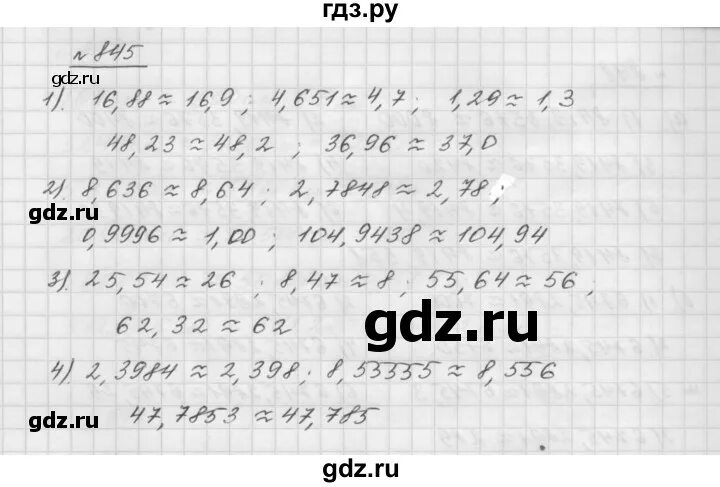 гдз.ру
№ 845
gdz.ru
1). 16,88 ≈ 16,9 ; 4,651 ≈ 4,7 ; 1,29 ≈ 1,3
48,23 ≈ 48,2 ; 36,96 ≈ 37,0
2). 8,636 ≈ 8,64 ; 2,7848 ≈ 2,78 ;
gdz.ru
0,9996 ≈ 1,00 ; 104,9438 ≈ 104,94
3). 25,54 ≈ 26 ; 8,47 ≈ 8 ; 55,64 ≈ 56 ,
62,32 ≈ 62
gdz.ru
4). 2,3984 ≈ 2,398 ; 8,55555 ≈ 8,556
gdz.ru
47,7853 ≈ 47,785
gdz.ru